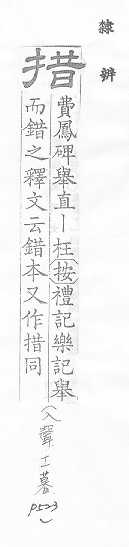 隸辨
措
費鳳碑舉直丨枉(按)禮記樂記舉
而錯之釋文云錯本又作措同
(入聲工暮
P523)